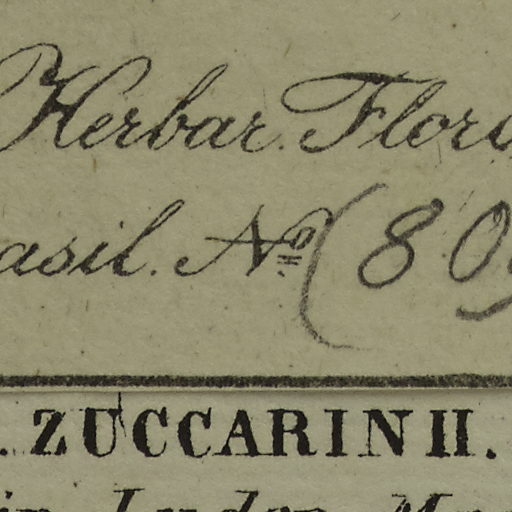 Herbar. Flor
asil. No (80
. ZUCCARINII.